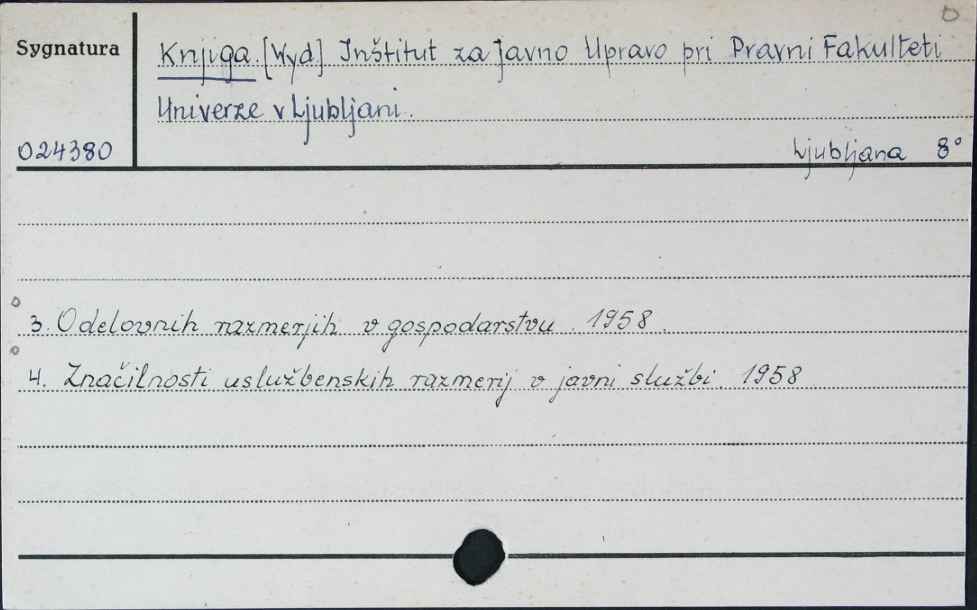 Sygnatura
Knjiga. [Wyd] Inštitut za Javno Upravo pri Pravni Fakulteti
Univerze v Ljubljani.
024380
Ljubljana 8°
3. Odelovnih razmerjih v gospodarstvu. 1958.
4. Značilnosti uslužbenskih razmerij v javni službi. 1958